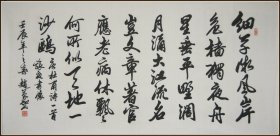 細草微風岸
危檣獨夜舟
星垂平野闊
月涌大江流名
豈文章著官
應老病休飄飄
何所似天地一
沙鷗
壬辰年之春